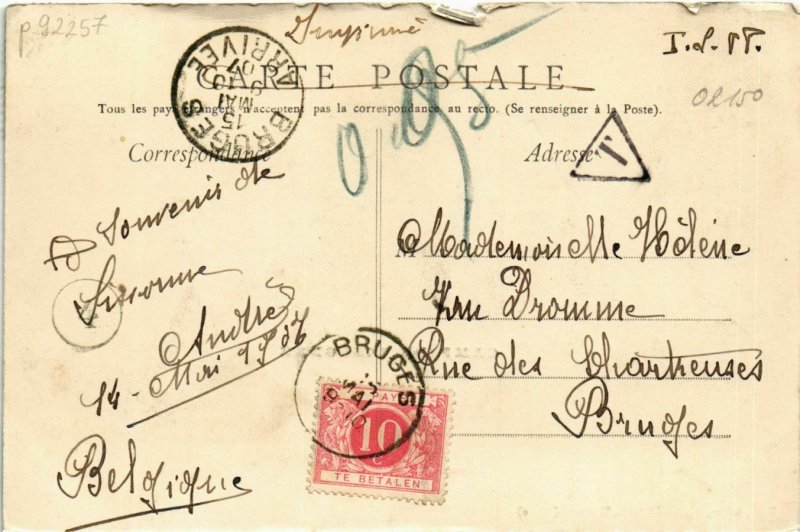 p 92257
Imprimé
I.L.PP.
02150
CARTE POSTALE
Tous les pays étrangers n'acceptent pas la correspondance au recto. (Se renseigner à la Poste).
Correspondance
Adresse
T
BRUGES
15
MAI
07
ARRIVEE
0,05
Souvenir de
Simonne
André
14 Mai 1907
Belgique
M Mademoiselle Hélène
Van Dromme
Rue des Chartreuses
Bruges
BRUGES
MAI
10
TE BETALEN